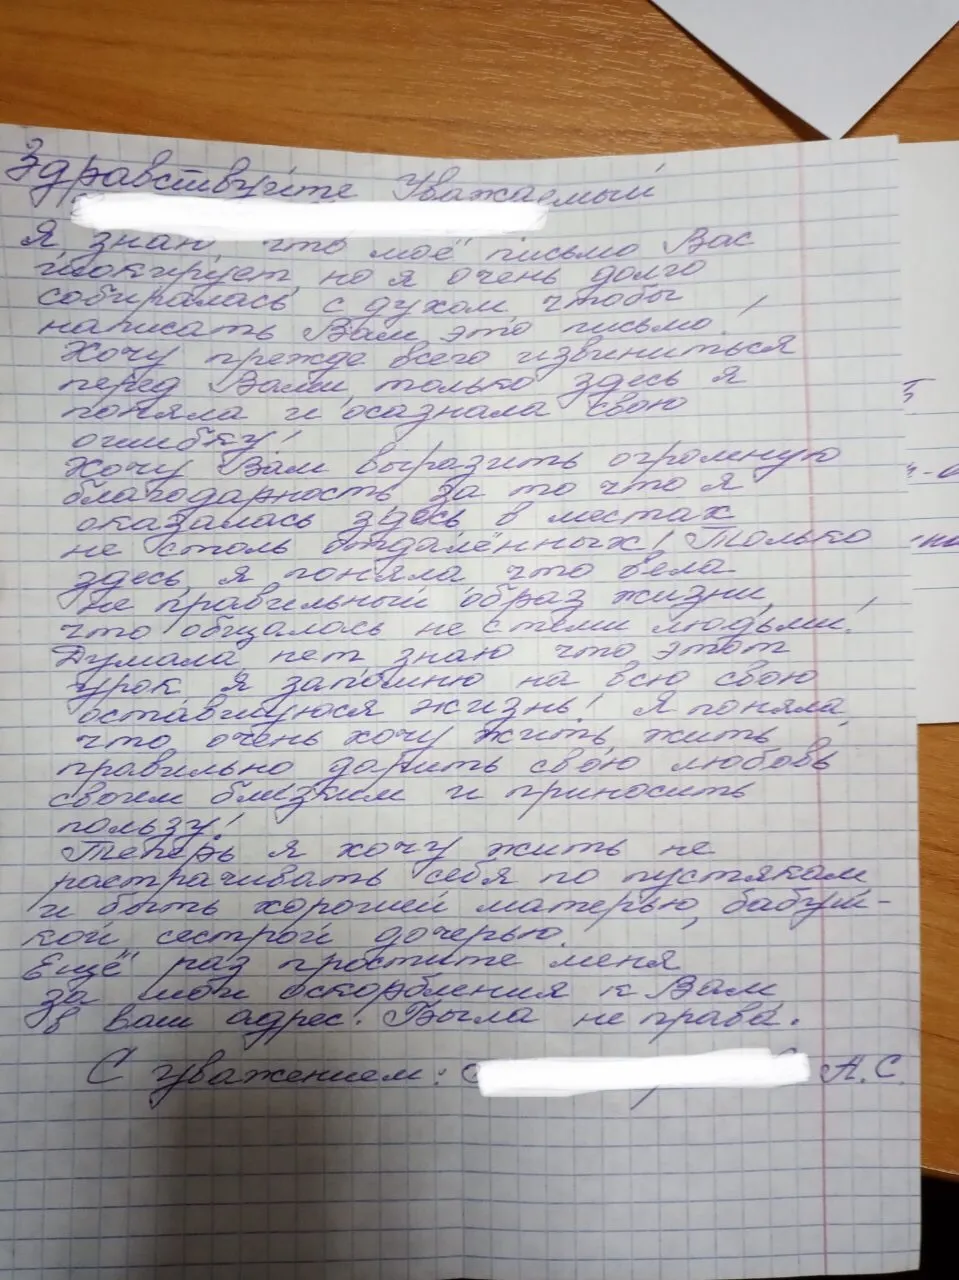 Здравствуйте Уважаемый
Я знаю что моё письмо Вас
шокирует, но я очень долго
собиралась с духом чтобы
написать Вам это письмо!
Хочу прежде всего извиниться
перед Вами только здесь я
поняла и осазнала свою
ошибку!
Хочу Вам выразить огромную
благодарность за то что я
оказалась здесь в местах
не столь отдалённых! Только
здесь я поняла что вела
не правильный образ жизни,
что общалась не с теми людьми!
Думала, нет знаю что этот
урок я запомню на всю свою
оставшуюся жизнь! Я поняла,
что очень хочу жить, жить
правильно дарить свою любовь
своим близким и приносить
пользу!
Теперь я хочу жить не
растрачивать себя по пустякам
и быть хорошей матерью, бабуш-
кой сестрой дочерью.
Ещё раз простите меня
за мои оскорбления к Вам
в Ваш адрес. Была не права.
С уважением: А.С.